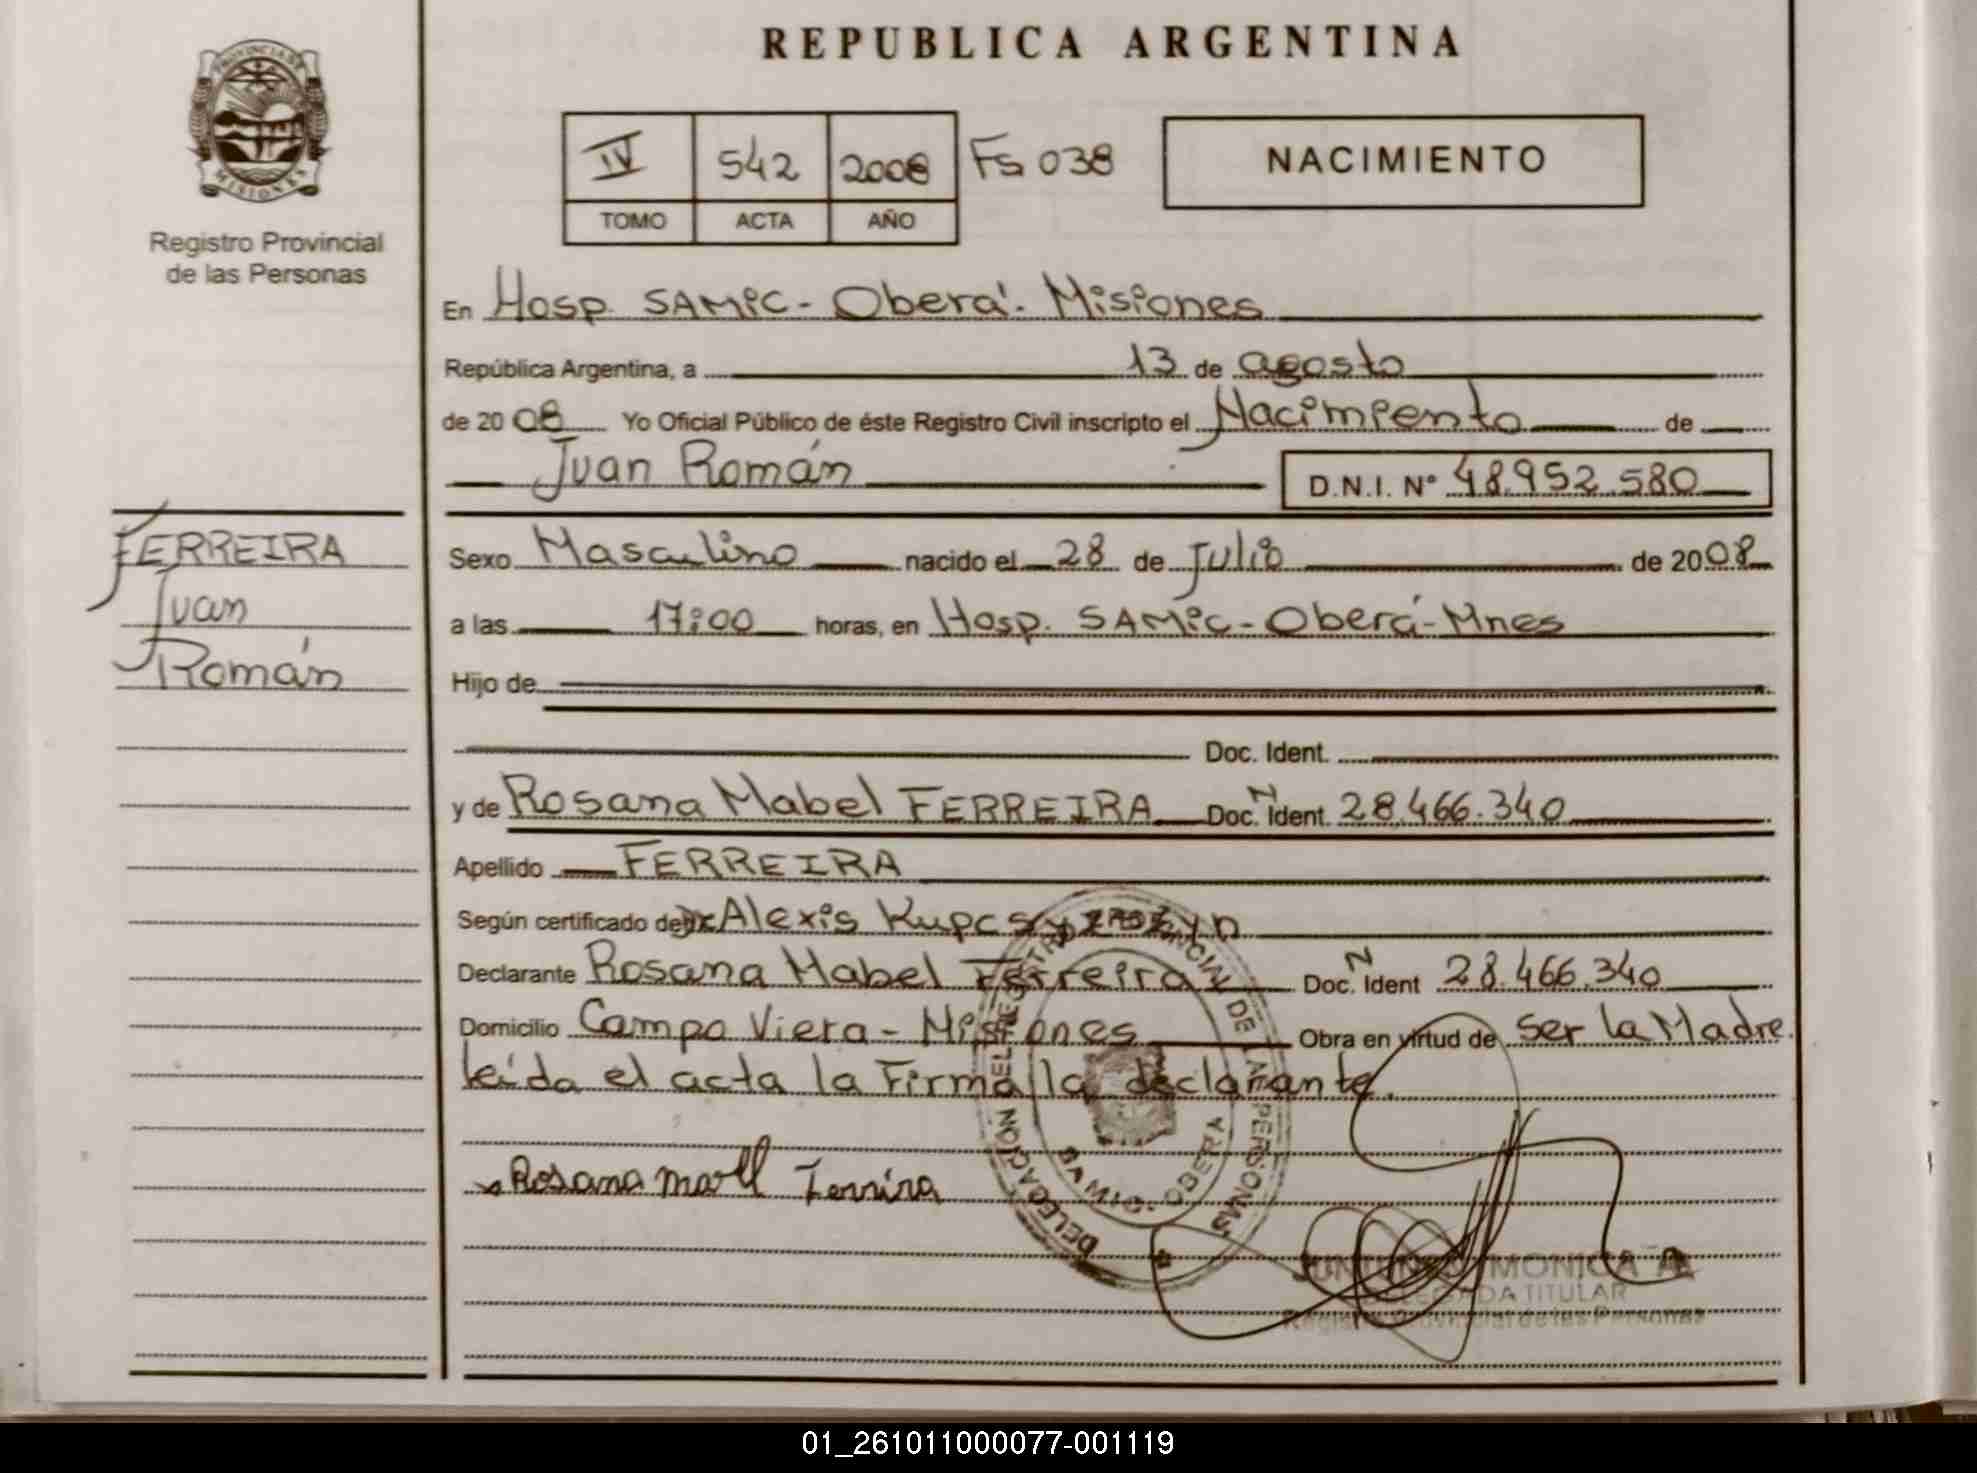 REPUBLICA ARGENTINA
PROVINCIA DE
MISIONES
Registro Provincial
de las Personas
IV 542 2008 Fs 038
TOMO ACTA AÑO
NACIMIENTO
En Hosp. SAMIC - Oberá. Misiones
República Argentina, a 13 de agosto
de 2008 Yo Oficial Público de éste Registro Civil inscripto el Nacimiento de
Juan Román D.N.I. Nº 48.952.580
FERREIRA
Juan
Román
Sexo Masculino nacido el 28 de Julio de 2008
a las 17:00 horas, en Hosp. SAMIC - Oberá - Mnes
Hijo de
Doc. Ident.
y de Rosana Mabel FERREIRA Doc. N Ident. 28.466.340
Apellido FERREIRA
Según certificado de Alexis
Declarante Rosana Mabel Ferreira Doc. N Ident 28.466.340
Domicilio Campo Viera - Misiones Obra en virtud de ser la Madre.
leída el acta la Firma la declarante.
Rosana Ferreira
DELEGACION DEL REGISTRO PROVINCIAL DE LAS PERSONAS
SAMIC - OBERA
MONICA A
DELEGADA TITULAR
Registro Provincial de las Personas
01_261011000077-001119